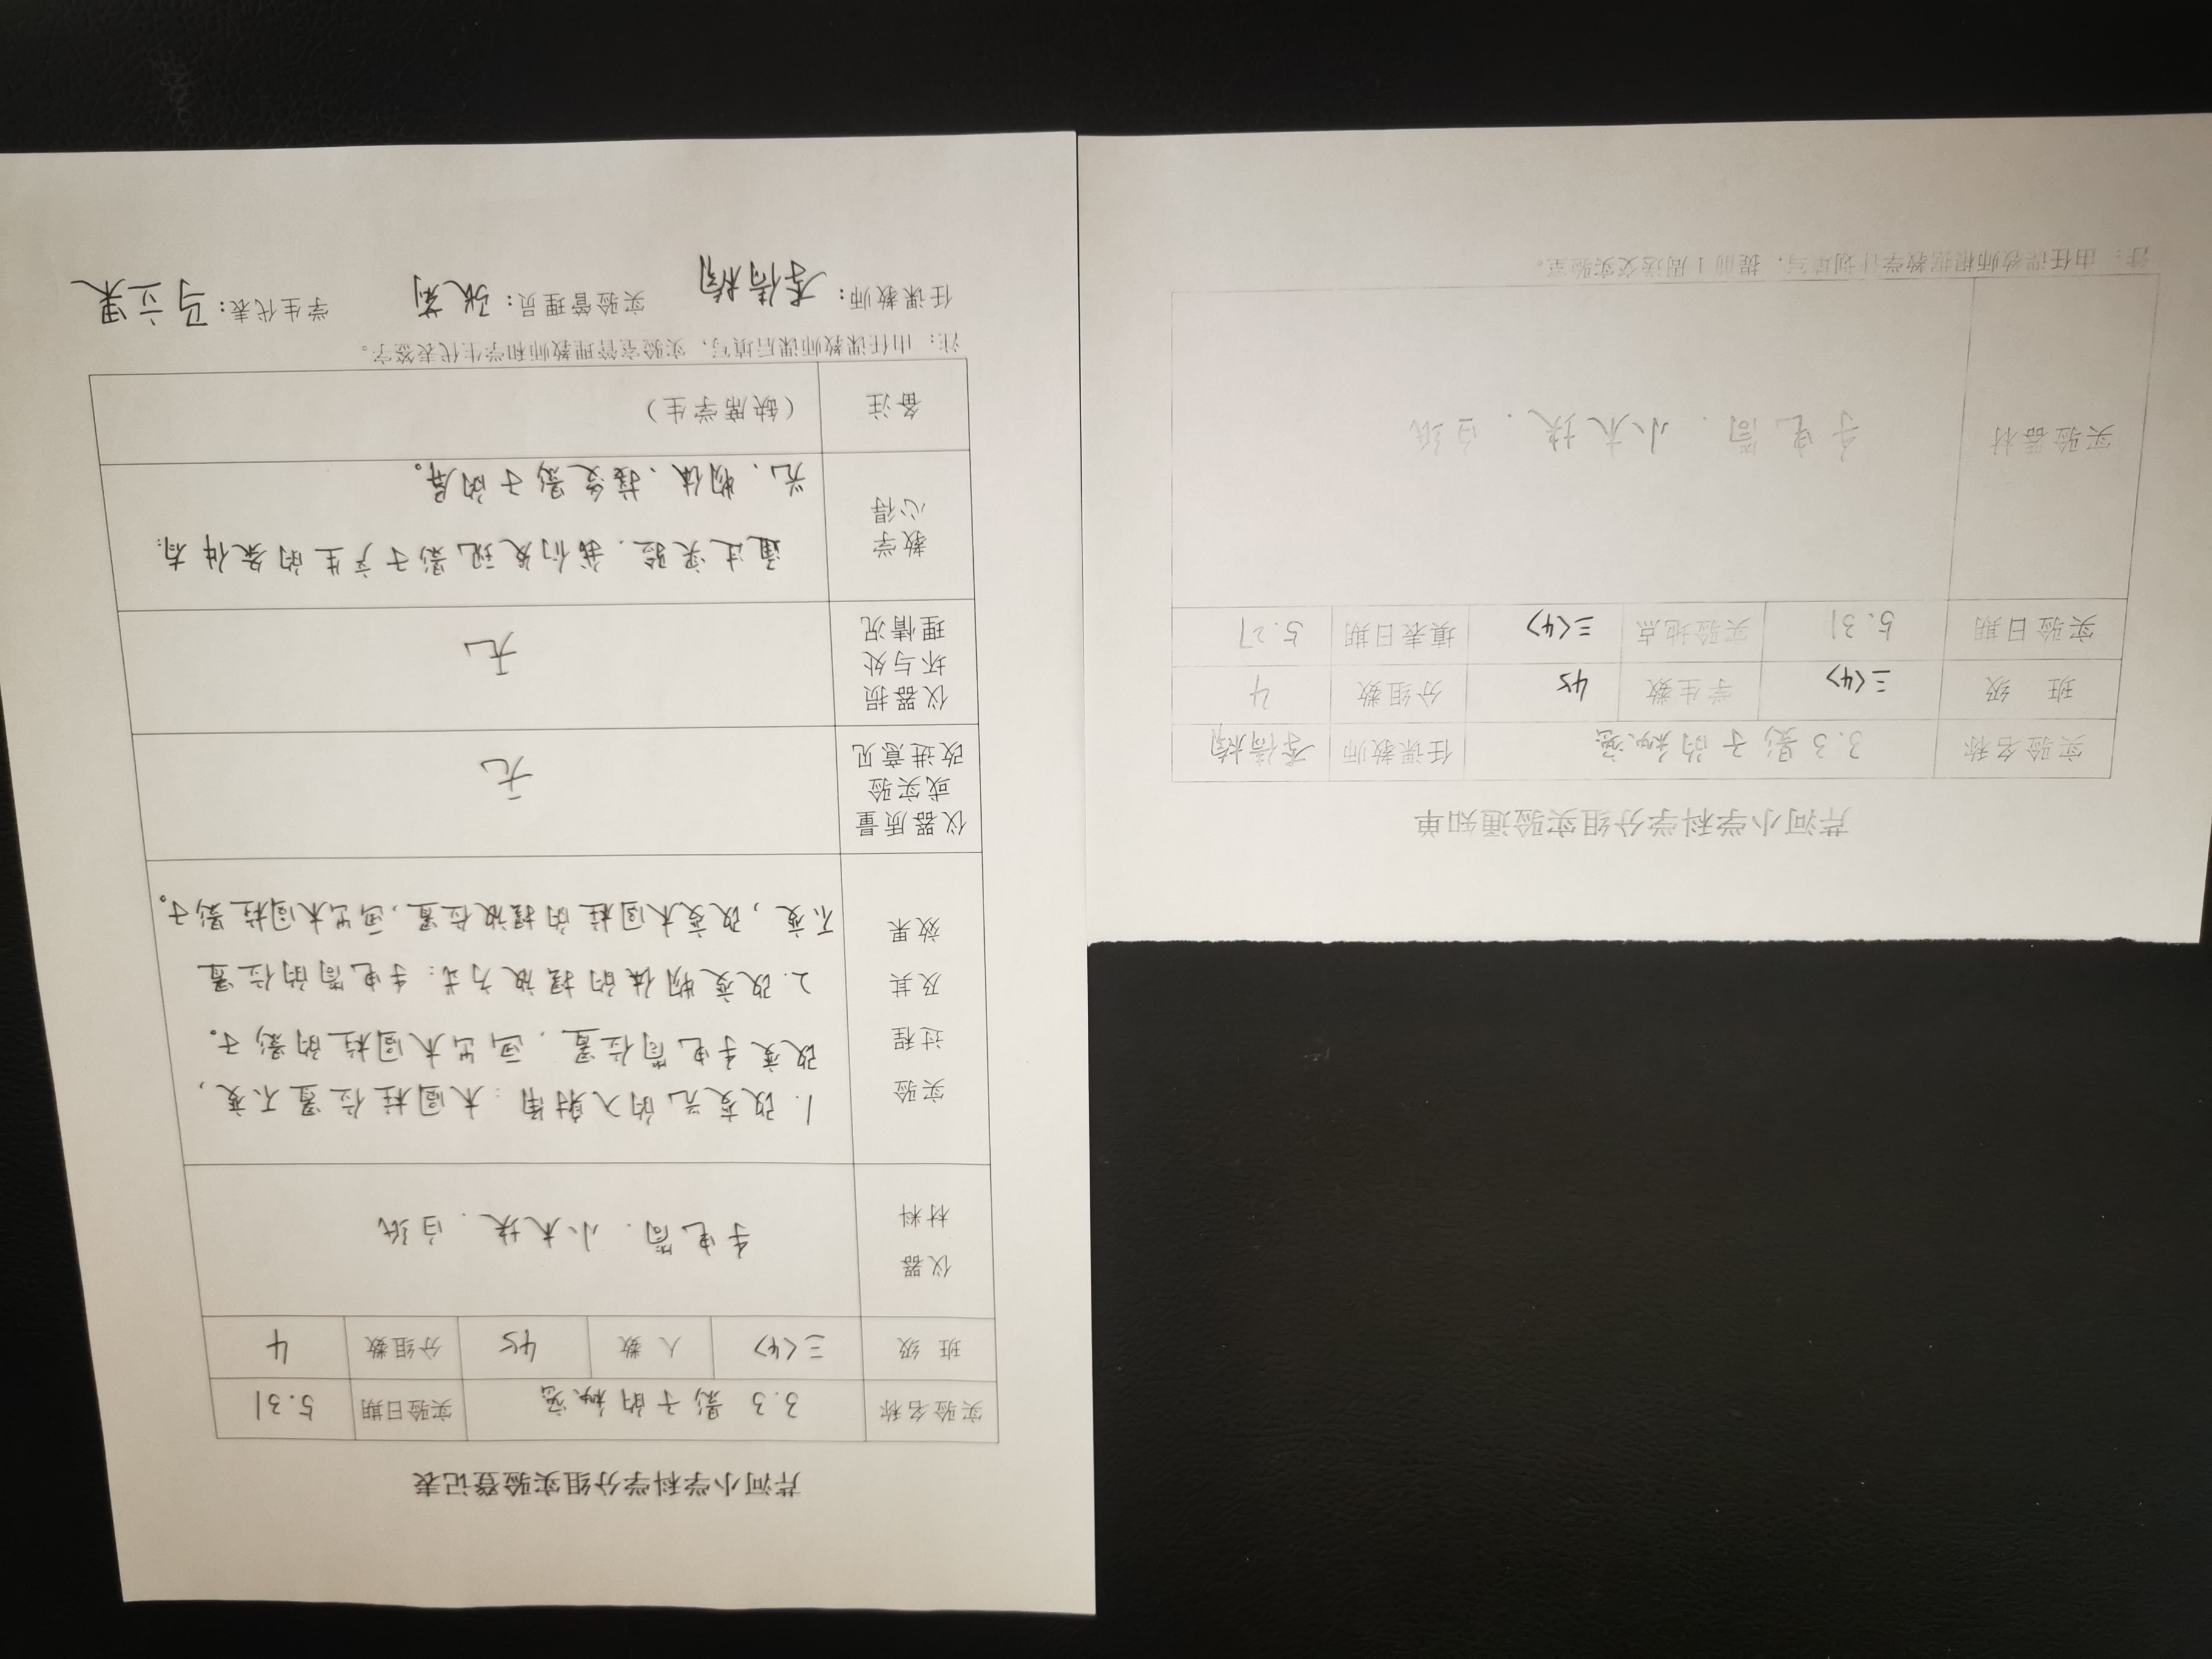 芹河小学科学分组实验通知单
实验名称 3.3 影子的秘密 任课教师 李倩楠
班 级 三<4> 学生数 45 分组数 4
实验日期 5.31 实验地点 三<4> 填表日期 5.27
实验器材 手电筒、小木块、白纸
注：由任课教师根据教学计划填写，提前1周送交实验室。
芹河小学科学分组实验登记表
实验名称 3.3 影子的秘密 实验日期 5.31
班 级 三<4> 人 数 45 分组数 4
仪器
材料
手电筒、小木块、白纸
实验
过程
及其
效果
1.改变光的入射角：木圆柱位置不变，
改变手电筒位置，画出木圆柱的影子。
2.改变物体的摆放方式：手电筒的位置
不变，改变木圆柱的摆放位置，画出木圆柱影子。
仪器质量
或实验
改进意见
无
仪器损
坏与处
理情况
无
教学
心得
通过实验，我们发现影子产生的条件有：
光、物体、接受影子的屏。
备注 （缺席学生）
注：由任课教师课后填写，实验室管理教师和学生代表签字。
任课教师：李倩楠 实验管理员：张 学生代表：马立果